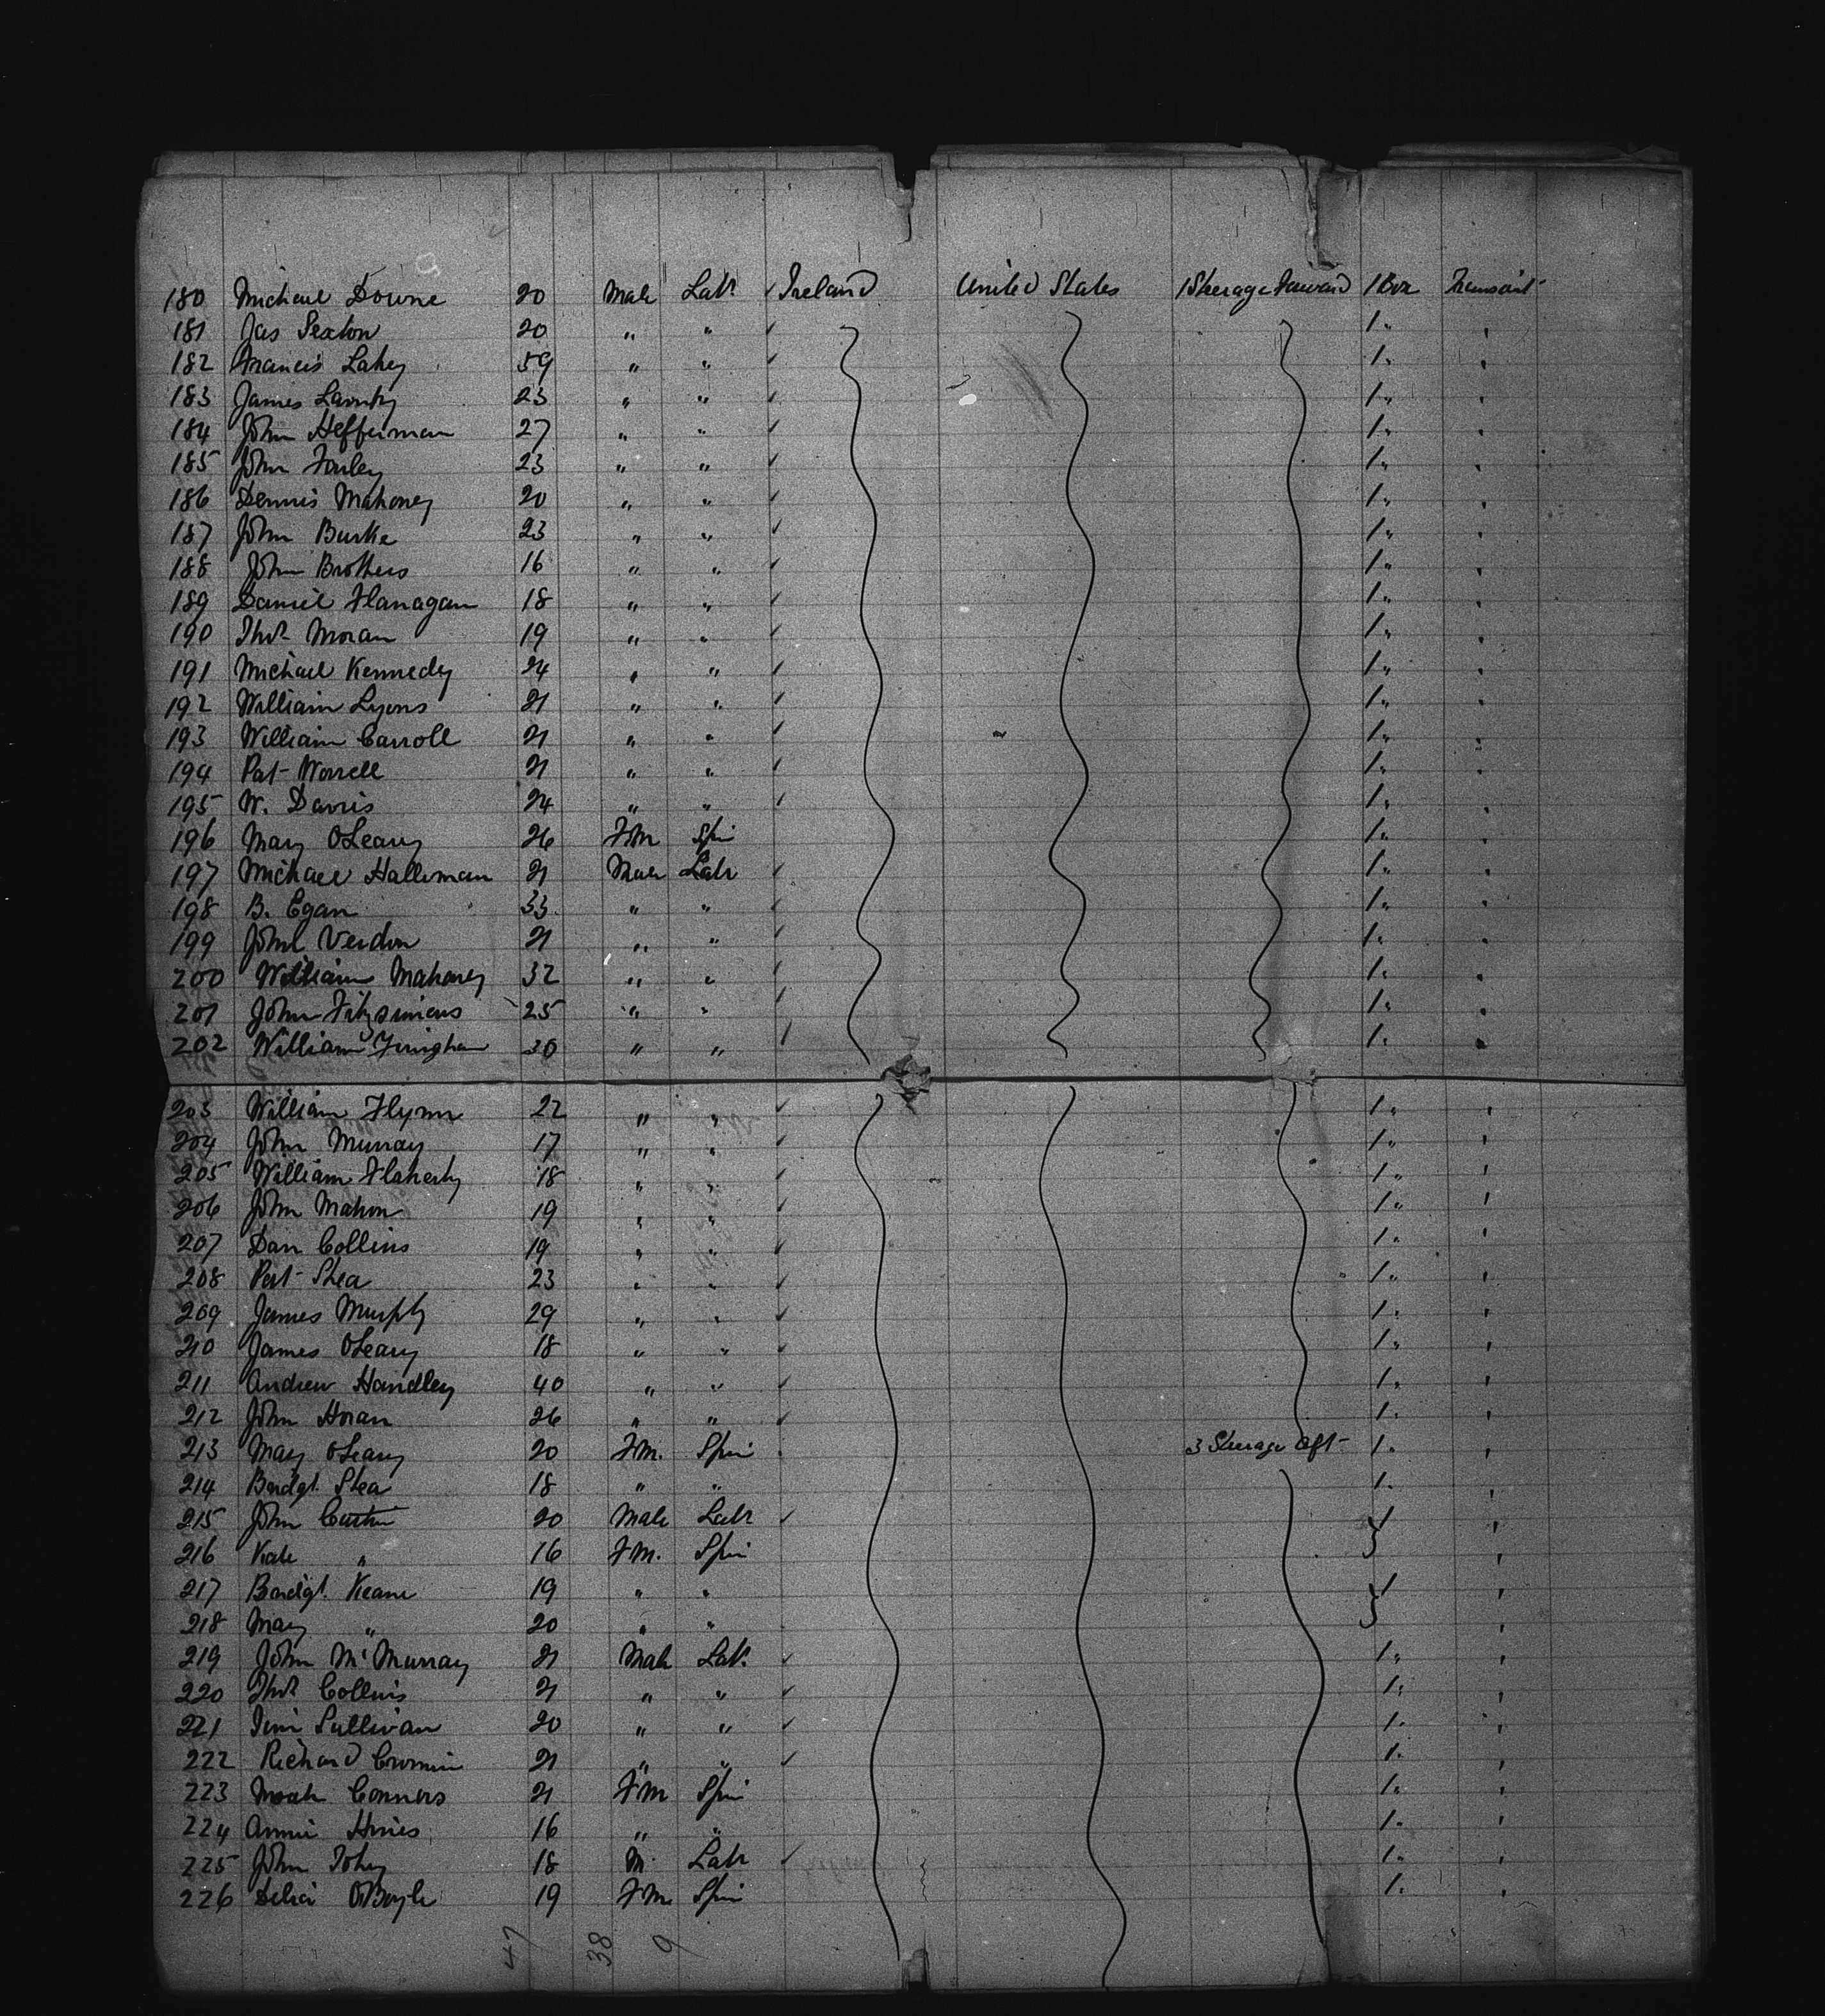 180 Michael Downe 20 Male Labr ✓ Ireland United States 1 Steerage Forward 1 Box Transient
181 Jas Sexton 20 " " ✓ 1 " "
182 Francis Lahey 59 " " ✓ 1 " "
183 James 23 " " ✓ 1 " "
184 John Heffernan 27 " " ✓ 1 " "
185 John Farley 23 " " ✓ 1 " "
186 Dennis Mahoney 20 " " ✓ 1 " "
187 John Burke 23 " " ✓ 1 " "
188 John Brothers 16 " " ✓ 1 " "
189 Daniel Flanagan 18 " " ✓ 1 " "
190 Thos Moran 19 " " ✓ 1 " "
191 Michael Kennedy 24 " " ✓ 1 " "
192 William Lyons 21 " " ✓ 1 " "
193 William Carroll 21 " " ✓ 1 " "
194 Pat Worrell 21 " " ✓ 1 " "
195 W. Davis 24 " " ✓ 1 " "
196 Mary OLeary 26 FM Spin 1 " "
197 Michael Halliman 21 Male Labr ✓ 1 " "
198 B. Egan 33 " " ✓ 1 " "
199 John Verdon 21 " " ✓ 1 " "
200 William Mahoney 32 " " ✓ 1 " "
201 John Fitzsimons 25 " " ✓ 1 " "
202 William 30 " " ✓ 1 " "
203 William Flynn 22 " " ✓ 1 " "
204 John Murray 17 " " ✓ 1 " "
205 William Flaherty 18 " " ✓ 1 " "
206 John Mahon 19 " " ✓ 1 " "
207 Dan Collins 19 " " ✓ 1 " "
208 Pat Shea 23 " " ✓ 1 " "
209 James Murphy 29 " " ✓ 1 " "
210 James OLeary 18 " " ✓ 1 " "
211 Andrew Handley 40 " " ✓ 1 " "
212 John Horan 26 " " ✓ 1 " "
213 Mary OLeary 20 FM. Spin 3 Steerage Aft 1 " "
214 Bridgt. Shea 18 " " 1 " "
215 John Curtin 20 Male Labr ✓ } 1 "
216 Kate " 16 FM. Spin "
217 Bridgt. Keane 19 " " } 1 "
218 Mary " 20 " " "
219 John McMurray 21 Male Labr ✓ 1 " "
220 Thos Collins 21 " " ✓ 1 " "
221 Jim Sullivan 20 " " ✓ 1 " "
222 Richard Cronin 21 " " ✓ 1 " "
223 Norah Connors 21 FM Spin 1 " "
224 Annie Hines 16 " " 1 " "
225 John 18 M. Labr ✓ 1 " "
226 Delia OBoyle 19 FM Spin 1 " "
47 38 9